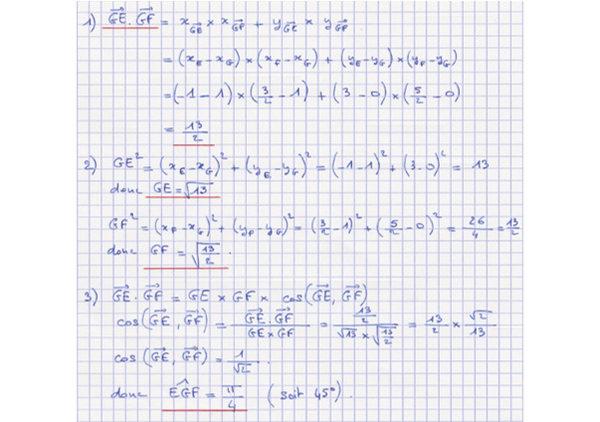 1) $\overrightarrow{GE} \cdot \overrightarrow{GF} = x_{\overrightarrow{GE}} \times x_{\overrightarrow{GF}} + y_{\overrightarrow{GE}} \times y_{\overrightarrow{GF}}$
$= (x_E - x_G) \times (x_F - x_G) + (y_E - y_G) \times (y_F - y_G)$
$= (-1 - 1) \times (\frac{3}{2} - 1) + (3 - 0) \times (\frac{5}{2} - 0)$
$= \frac{13}{2}$
2) $GE^2 = (x_E - x_G)^2 + (y_E - y_G)^2 = (-1 - 1)^2 + (3 - 0)^2 = 13$
donc $GE = \sqrt{13}$
$GF^2 = (x_F - x_G)^2 + (y_F - y_G)^2 = (\frac{3}{2} - 1)^2 + (\frac{5}{2} - 0)^2 = \frac{26}{4} = \frac{13}{2}$
donc $GF = \sqrt{\frac{13}{2}}$.
3) $\overrightarrow{GE} \cdot \overrightarrow{GF} = GE \times GF \times \cos(\overrightarrow{GE}, \overrightarrow{GF})$
$\cos(\overrightarrow{GE}, \overrightarrow{GF}) = \frac{\overrightarrow{GE} \cdot \overrightarrow{GF}}{GE \times GF} = \frac{\frac{13}{2}}{\sqrt{13} \times \sqrt{\frac{13}{2}}} = \frac{13}{2} \times \frac{\sqrt{2}}{13}$
$\cos(\overrightarrow{GE}, \overrightarrow{GF}) = \frac{1}{\sqrt{2}}$.
donc $\widehat{EGF} = \frac{\pi}{4}$ (soit 45°).